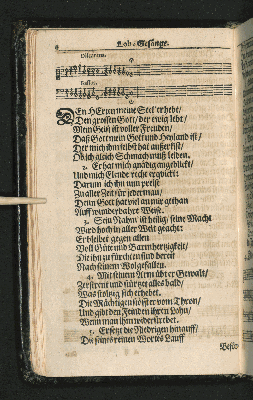 Lob-Gesänge.
Discantus.
Bassus.
DEn HErrn meine Seel' erhebt/
Den grossen Gott/ der ewig lebt/
Mein Geist ist voller Freuden/
Daß Gott mein Gott und Heyland ist/
Der mich ihm selbst hat außerkist/
Ob ich gleich Schmach muß leiden.
2. Er hat mich gnädig angeblickt/
Und mich Elende recht erqvickt:
Darum ich ihn nun preise
Zu aller Zeit für jederman/
Denn Gott hat viel an mir gethan
Auff wunderbahre Weise.
3. Sein Nahm' ist heilig, seine Macht
Wird hoch in aller Welt geacht:
Er bleibet gegen allen
Voll Güte und Barmhertzigkeit/
Die ihn zu fürchten sind bereit
Nach seinem Wolgefallen.
4. Mit seinem Arm übt er Gewalt/
Zerstreut und stürtzet alles bald/
Was stoltz sich erhebet.
Die Mächtigen stösst er vom Thron/
Und gibt den Feinden ihren Lohn/
Wenn man ihm widerstrebet.
5. Er setzt die Niedrigen hinauff/
Die seines reinen Wortes Lauff